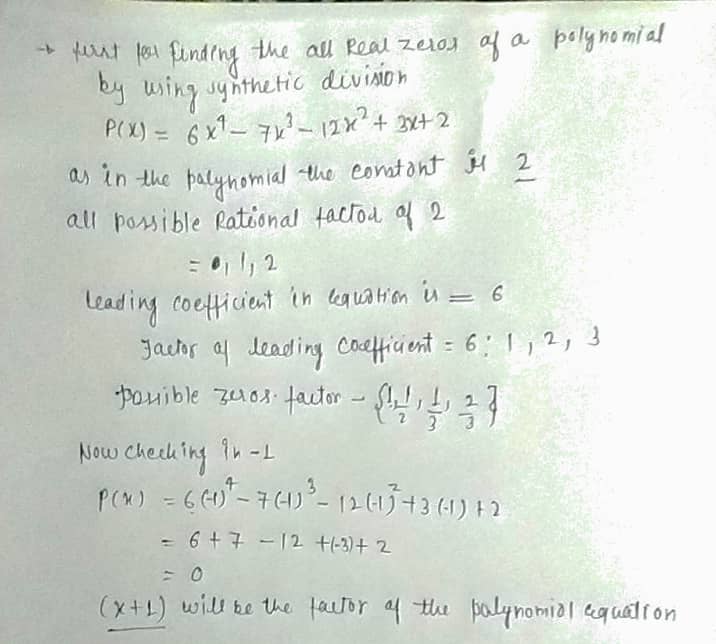 → first for finding the all Real zeros of a polynomial
by using synthetic division
P(x) = 6x⁴ - 7x³ - 12x² + 3x + 2
as in the polynomial the constant is 2
all possible Rational factor of 2
= 1, 2
leading coefficient in equation is = 6
Factor of leading coefficient = 6: 1, 2, 3
possible zeros factor - {1, 1/2, 1/3, 2/3}
Now checking in -1
P(x) = 6(-1)⁴ - 7(-1)³ - 12(-1)² + 3(-1) + 2
= 6 + 7 - 12 + (-3) + 2
= 0
(x+1) will be the factor of the polynomial equation